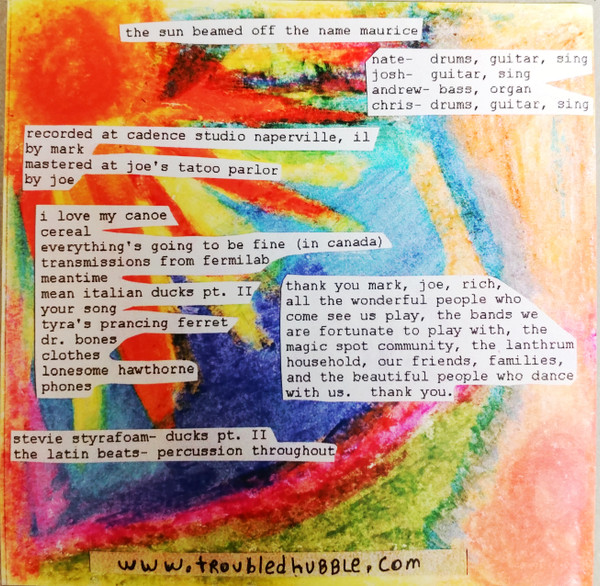 the sun beamed off the name maurice
nate- drums, guitar, sing
josh- guitar, sing
andrew- bass, organ
chris- drums, guitar, sing
recorded at cadence studio naperville, il
by mark
mastered at joe's tatoo parlor
by joe
i love my canoe
cereal
everything's going to be fine (in canada)
transmissions from fermilab
meantime
mean italian ducks pt. II
your song
tyra's prancing ferret
dr. bones
clothes
lonesome hawthorne
phones
thank you mark, joe, rich,
all the wonderful people who
come see us play, the bands we
are fortunate to play with, the
magic spot community, the lanthrum
household, our friends, families,
and the beautiful people who dance
with us. thank you.
stevie styrafoam- ducks pt. II
the latin beats- percussion throughout
www.troubledhubble.com